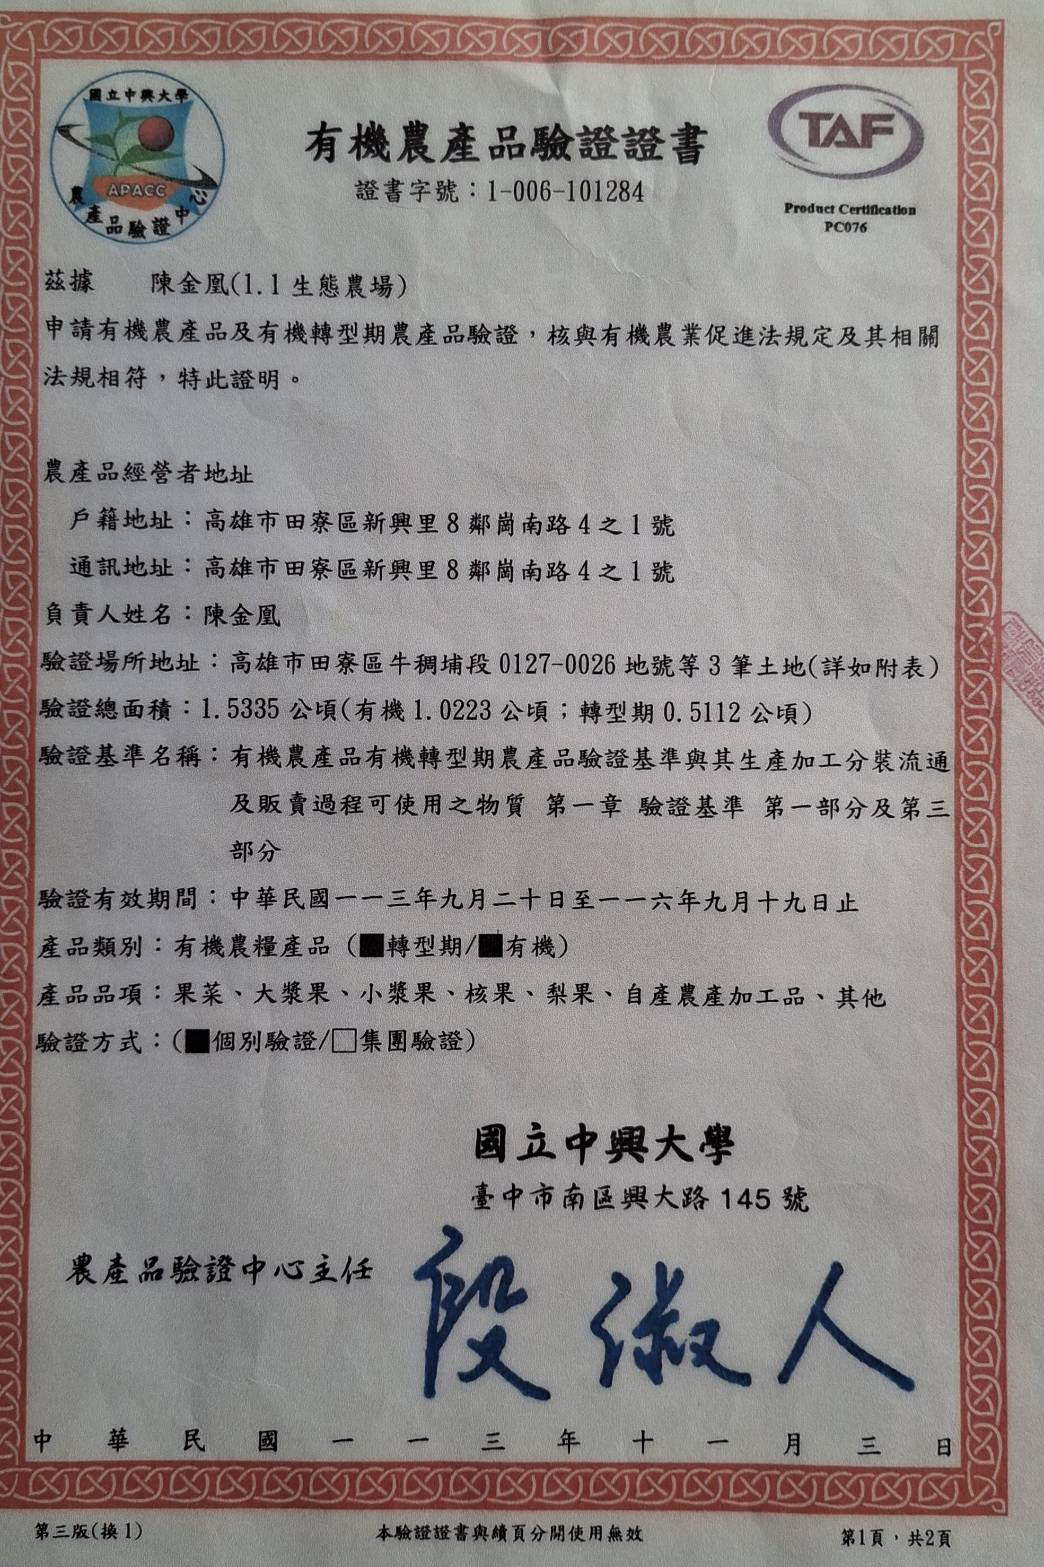 國立中興大學
APACC
農產品驗證中心
TAF
Product Certification
PC076
有機農產品驗證證書
證書字號：1-006-101284
茲據　　陳金凰(1.1 生態農場)
申請有機農產品及有機轉型期農產品驗證，核與有機農業促進法規定及其相關
法規相符，特此證明。
農產品經營者地址
戶籍地址：高雄市田寮區新興里 8 鄰崗南路 4 之 1 號
通訊地址：高雄市田寮區新興里 8 鄰崗南路 4 之 1 號
負責人姓名：陳金凰
驗證場所地址：高雄市田寮區牛稠埔段 0127-0026 地號等 3 筆土地(詳如附表)
驗證總面積：1.5335 公頃(有機 1.0223 公頃；轉型期 0.5112 公頃)
驗證基準名稱：有機農產品有機轉型期農產品驗證基準與其生產加工分裝流通
及販賣過程可使用之物質 第一章 驗證基準 第一部分及第三
部分
驗證有效期間：中華民國一一三年九月二十日至一一六年九月十九日止
產品類別：有機農糧產品（■轉型期/■有機）
產品品項：果菜、大漿果、小漿果、核果、梨果、自產農產加工品、其他
驗證方式：(■個別驗證/□集團驗證)
國立中興大學
臺中市南區興大路 145 號
農產品驗證中心主任
段淑人
中華民國一一三年十一月三日
第三版(換 1)
本驗證證書與續頁分開使用無效
第1頁，共2頁